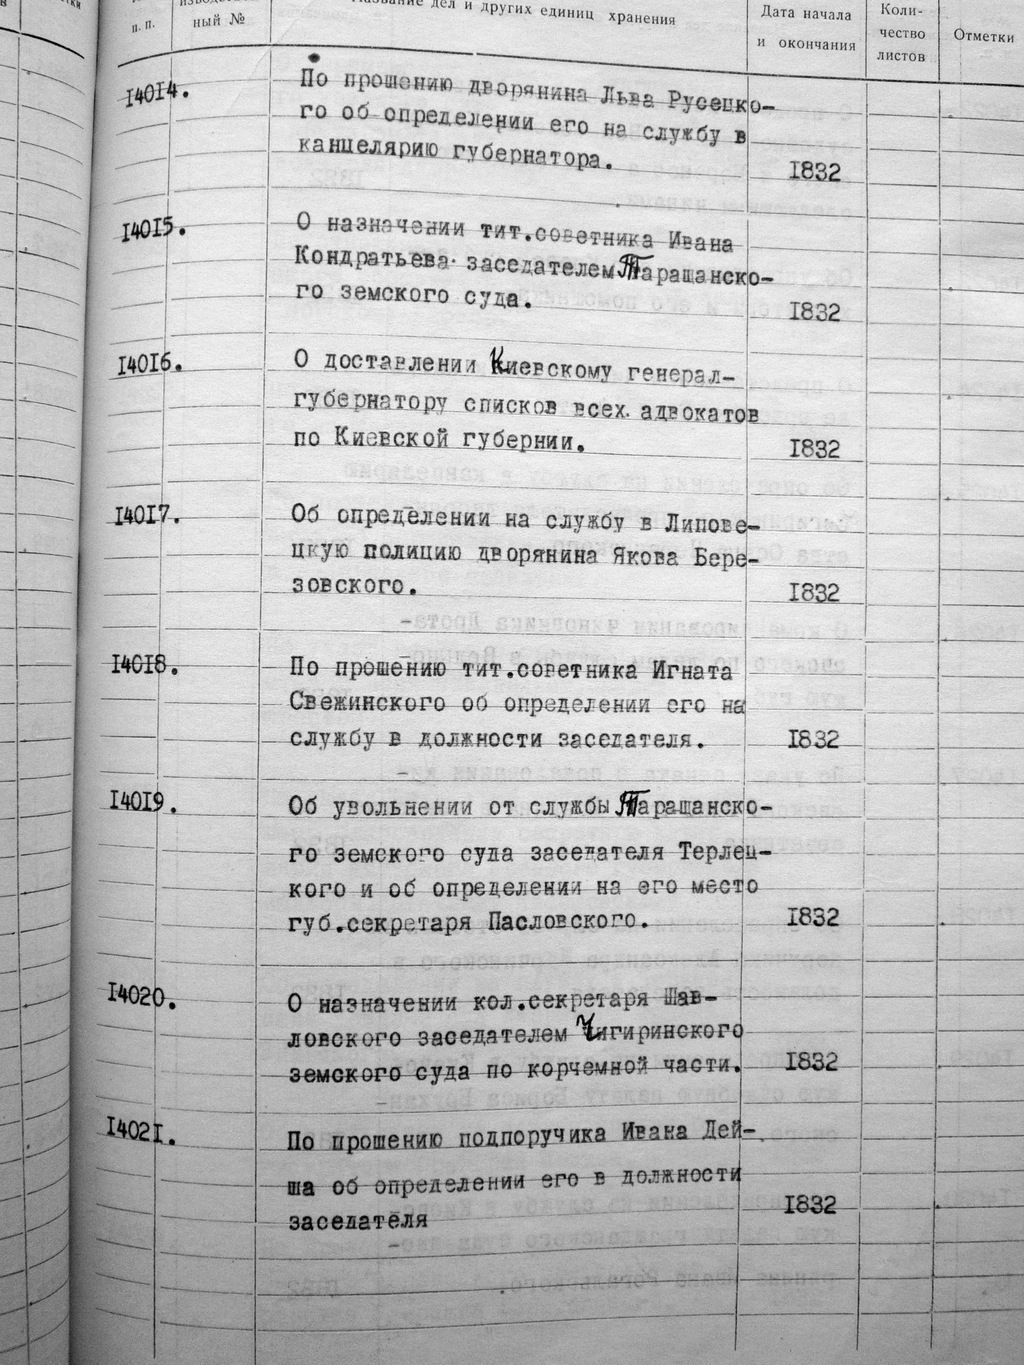 п. п.
ный №
Название дел и других единиц хранения
Дата начала
и окончания
Коли-
чество
листов
Отметки
I4014.
По прошению дворянина Льва Русецко-
го об определении его на службу в
канцелярию губернатора.
I832
I4015.
О назначении тит.советника Ивана
Кондратьева заседателем Таращанско-
го земского суда.
I832
I4016.
О доставлении Киевскому генерал-
губернатору списков всех адвокатов
по Киевской губернии.
I832
I4017.
Об определении на службу в Липове-
цкую полицию дворянина Якова Бере-
зовского.
I832
I4018.
По прошению тит.советника Игната
Свежинского об определении его на
службу в должности заседателя.
I832
I4019.
Об увольнении от службы Таращанско-
го земского суда заседателя Терлец-
кого и об определении на его место
губ.секретаря Пасловского.
I832
I4020.
О назначении кол.секретаря Шав-
ловского заседателем Чигиринского
земского суда по корчемной части.
I832
I4021.
По прошению подпоручика Ивана Дей-
ша об определении его в должности
заседателя
I832